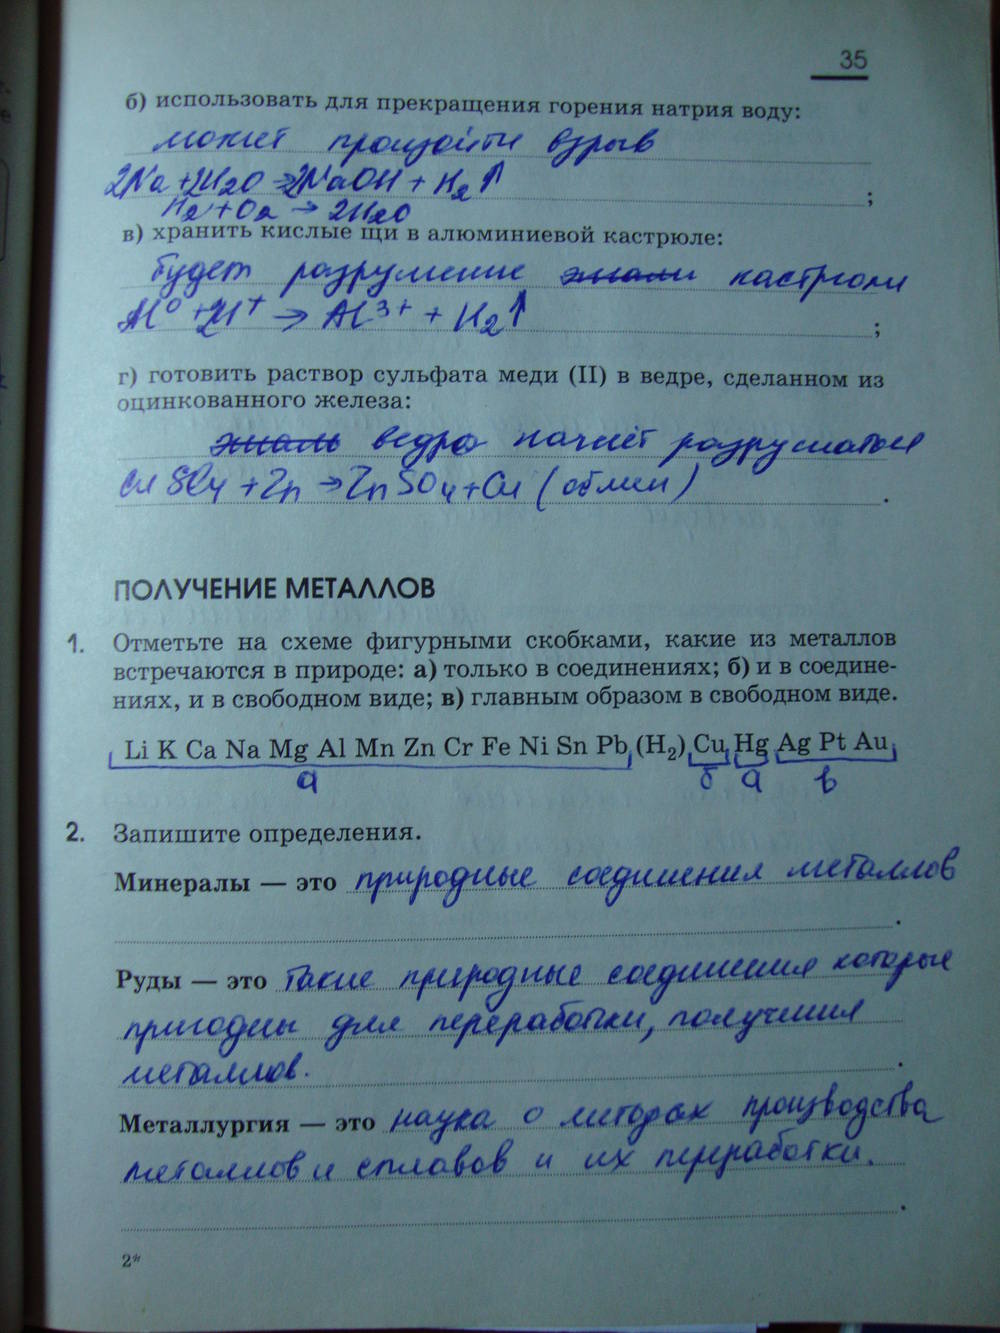 35
б) использовать для прекращения горения натрия воду:
может произойти взрыв
2Na + 2H2O → 2NaOH + H2↑
;
H2 + O2 → 2H2O
в) хранить кислые щи в алюминиевой кастрюле:
будет разрушение эмали кастрюли
Al⁰ + 2H⁺ → Al³⁺ + H2↑
;
г) готовить раствор сульфата меди (II) в ведре, сделанном из
оцинкованного железа:
эмаль ведро начнёт разрушаться
CuSO4 + Zn → ZnSO4 + Cu (обмен) .
ПОЛУЧЕНИЕ МЕТАЛЛОВ
1. Отметьте на схеме фигурными скобками, какие из металлов
встречаются в природе: а) только в соединениях; б) и в соедине-
ниях, и в свободном виде; в) главным образом в свободном виде.
Li K Ca Na Mg Al Mn Zn Cr Fe Ni Sn Pb (H2) Cu Hg Ag Pt Au
а б а в
2. Запишите определения.
Минералы — это природные соединения металлов
.
Руды — это такие природные соединения которые
пригодны для переработки, получения
металлов. .
Металлургия — это наука о методах производства
металлов и сплавов и их переработки.
.
2*